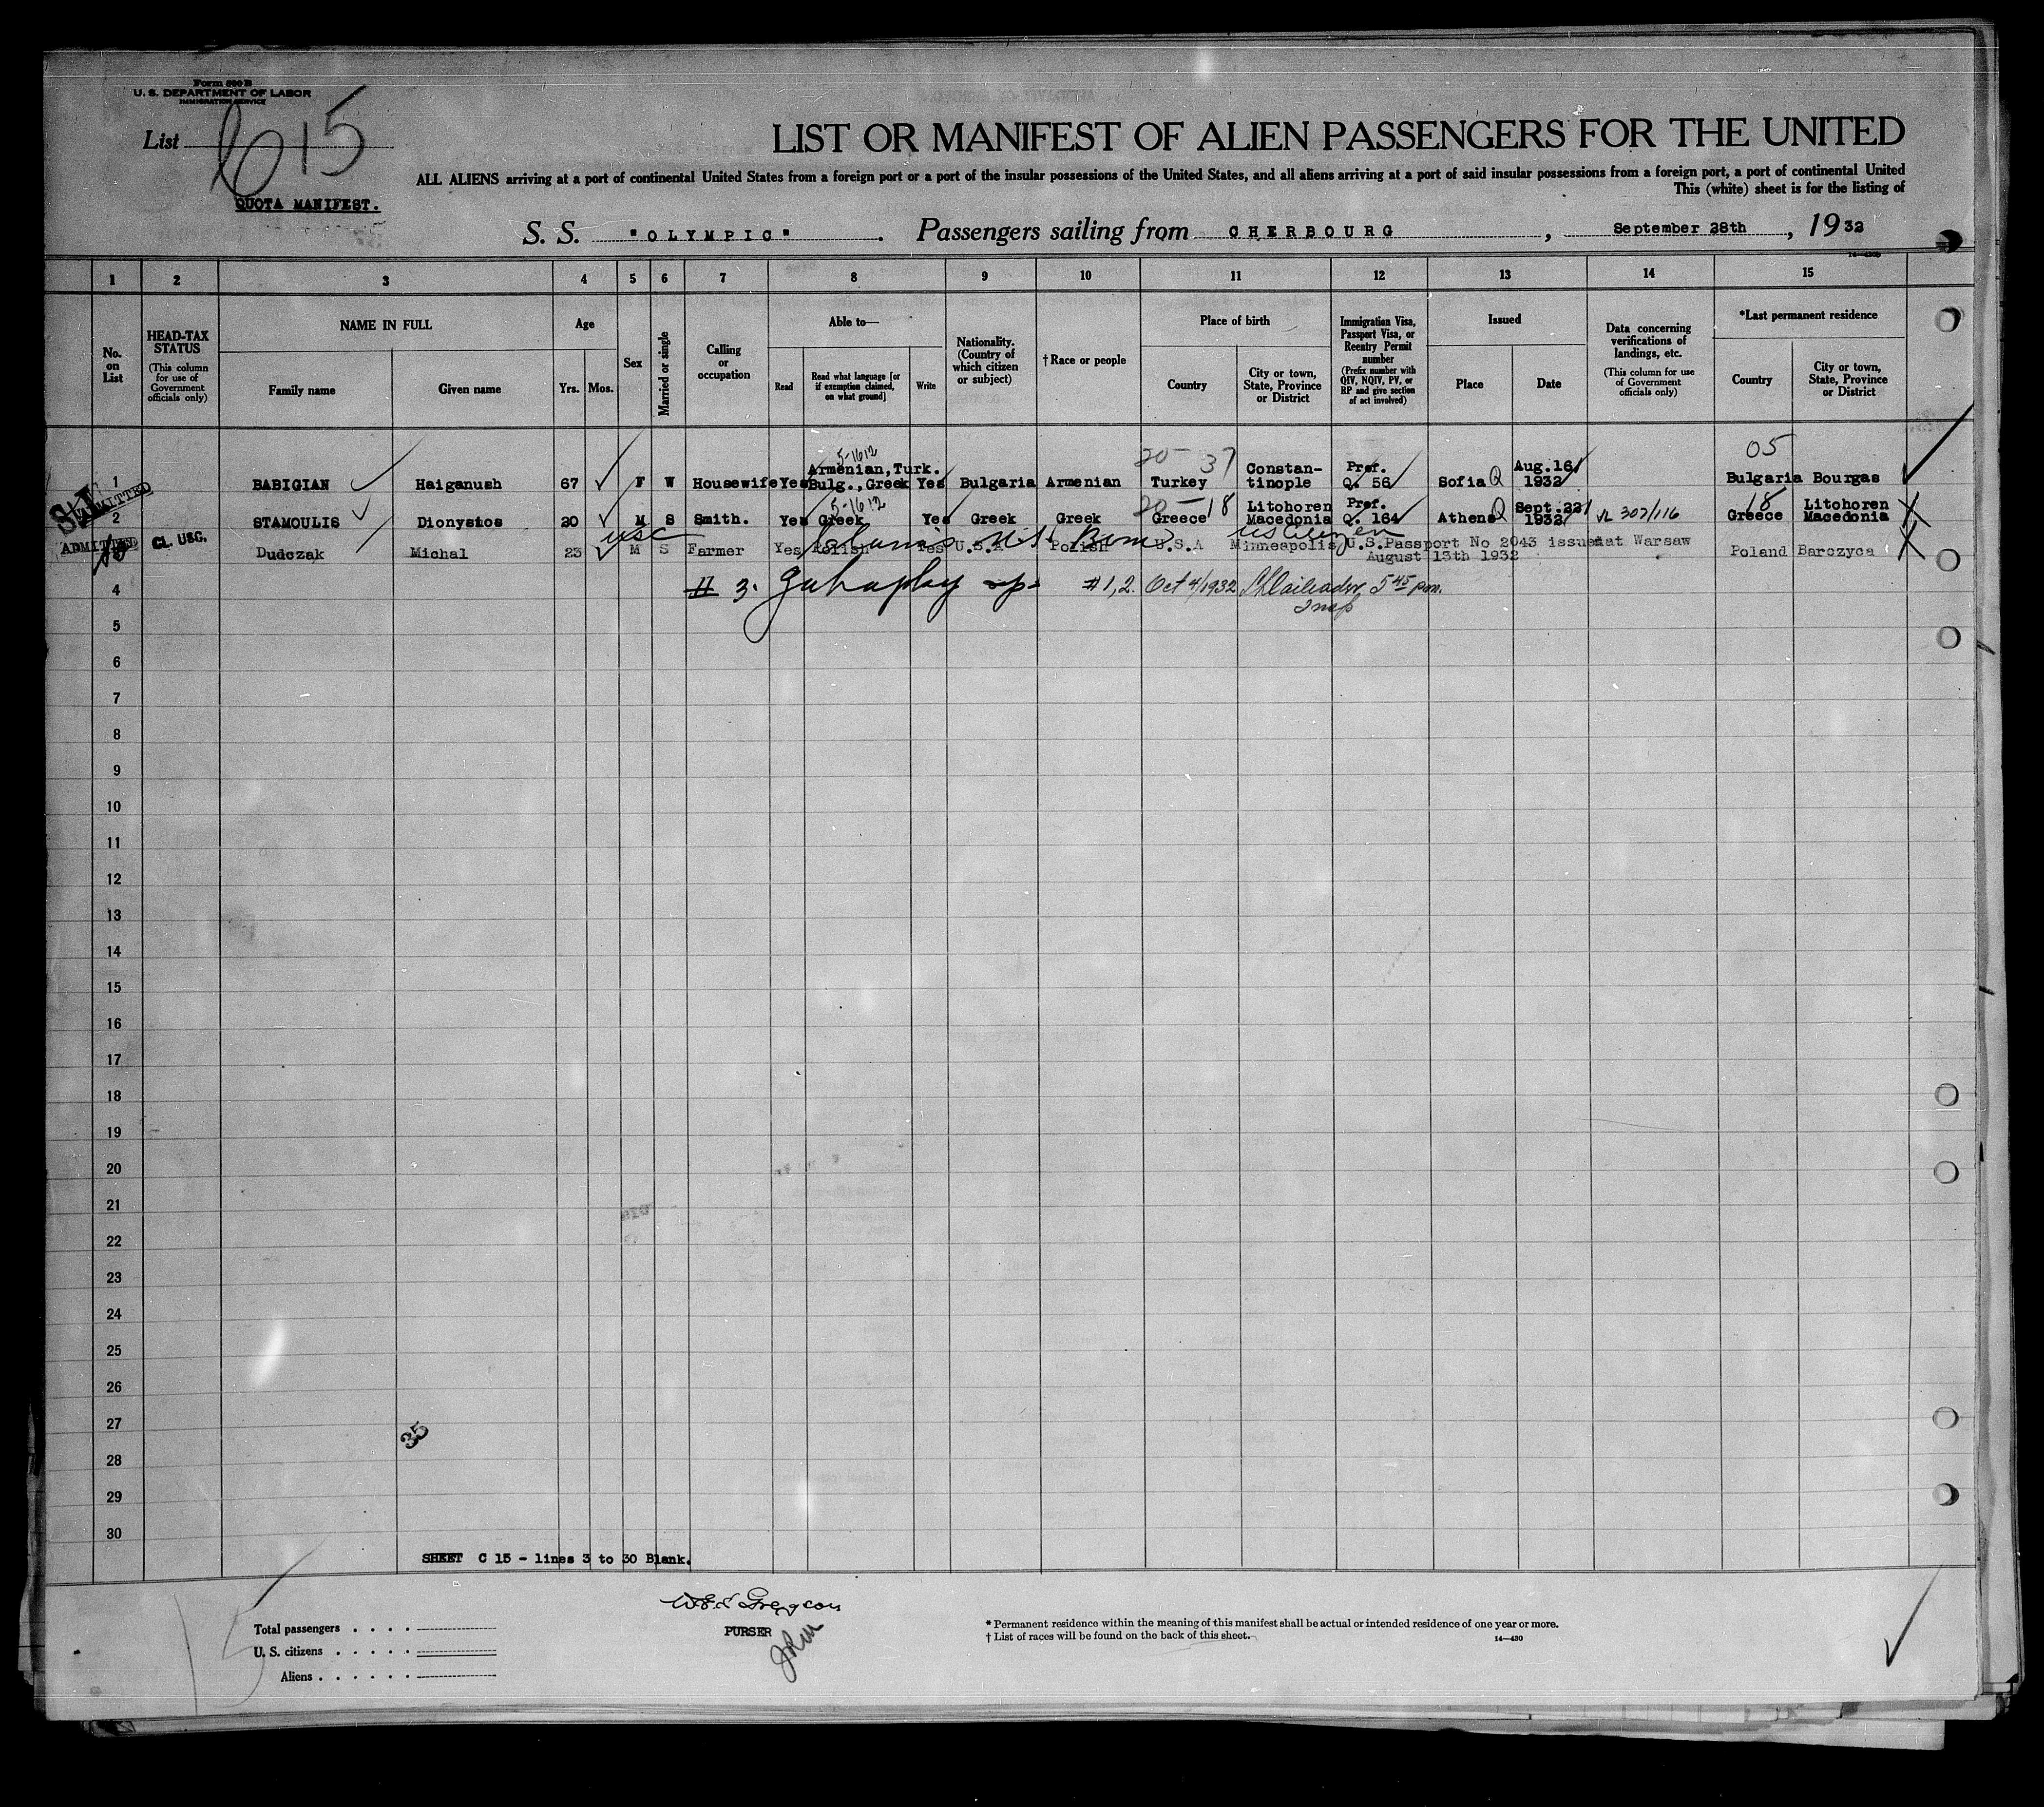 Form 500 B
U. S. DEPARTMENT OF LABOR
IMMIGRATION SERVICE
List 615
QUOTA MANIFEST.
LIST OR MANIFEST OF ALIEN PASSENGERS FOR THE UNITED
ALL ALIENS arriving at a port of continental United States from a foreign port or a port of the insular possessions of the United States, and all aliens arriving at a port of said insular possessions from a foreign port, a port of continental United
This (white) sheet is for the listing of
S. S. "OLYMPIC". Passengers sailing from CHERBOURG, September 28th, 1932
1 2 3 4 5 6 7 8 9 10 11 12 13 14 15
No. on List
HEAD-TAX STATUS
(This column for use of Government officials only)
NAME IN FULL
Family name
Given name
Age
Yrs.
Mos.
Sex
Married or single
Calling or occupation
Able to—
Read
Read what language [or if exemption claimed, on what ground]
Write
Nationality. (Country of which citizen or subject)
†Race or people
Place of birth
Country
City or town, State, Province or District
Immigration Visa, Passport Visa, or Reentry Permit number
(Prefix number with QIV, NQIV, PV, or RP and give section of act involved)
Issued
Place
Date
Data concerning verifications of landings, etc.
(This column for use of Government officials only)
*Last permanent residence
Country
City or town, State, Province or District
5-1612 20- 37 05
Armenian, Turk. Constan- Pref. Aug.16/
1 BABIGIAN Haiganush 67 F W Housewife Yes Bulg., Greek Yes Bulgaria Armenian Turkey tinople Q. 56 Sofia Q 1932 Bulgaria Bourgas
ADMITTED
5-1612 20-18 Litohoren Pref. Sept.22/ 18 Litohoren
2 STAMOULIS Dionysios 20 M S Smith. Yes Greek Yes Greek Greek Greece Macedonia Q. 164 Athens Q 1932 VL 307/116 Greece Macedonia
ADMITTED CL. USC.
USC US Citizen
Dudczak Michal 23 M S Farmer Yes Polish Yes U.S.A Polish U.S.A Minneapolis U.S.Passport No 2043 issued at Warsaw Poland Barczyca
August 13th 1932
4 # 3. #1,2. Oct 4/1932 5 45 pm.
5
6
7
8
9
10
11
12
13
14
15
16
17
18
19
20
21
22
23
24
25
26
27
35
28
29
30
SHEET C 15 - lines 3 to 30 Blank.
PURSER
Total passengers
U. S. citizens
Aliens
15
* Permanent residence within the meaning of this manifest shall be actual or intended residence of one year or more.
† List of races will be found on the back of this sheet.
14—430